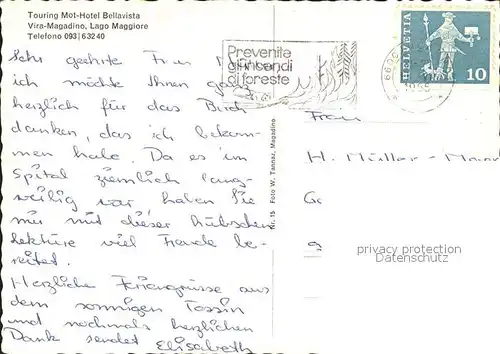 Touring Mot-Hotel Bellavista
Vira-Magadino, Lago Maggiore
Telefono 093|63240
Sehr geehrte Frau
ich möchte Ihnen ganz
herzlich für das Buch
danken, das ich bekom-
men habe. Da es im
Spital ziemlich lang-
weilig war haben Sie
mir mit dieser hübschen
Lektüre viel Freude be-
reitet.
Herzliche Feriengrüsse aus
dem sonnigen Tessin
und nochmals herzlichen
Dank sendet Elisabeth
Nr. 15 Foto W. Tannaz, Magadino
Prevenite
gli incendi
di foreste
HELVETIA
10
Frau
H. Müller-
privacy protection
Datenschutz